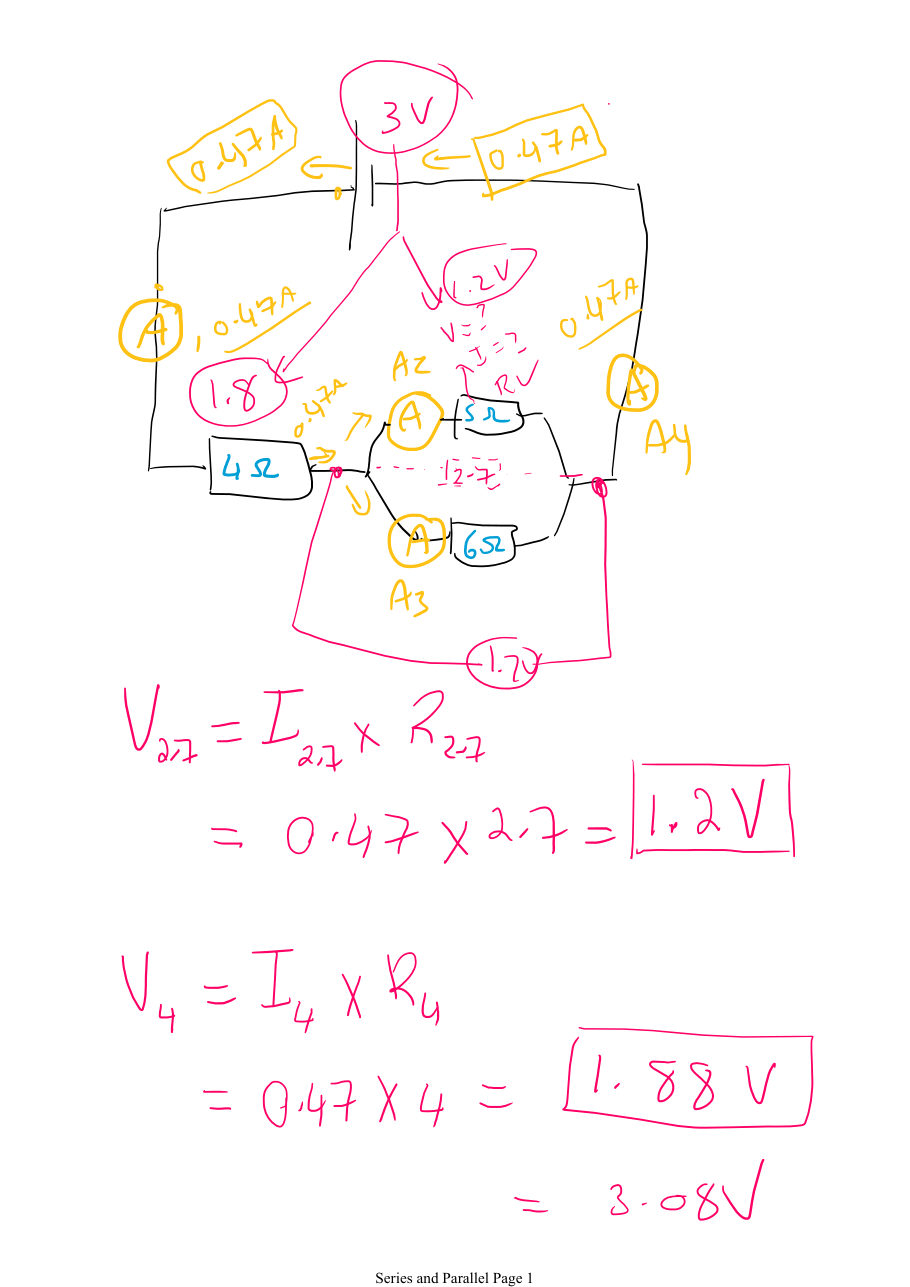 3V
0.47A
0.47A
1.2V
V=?
I=?
A, 0.47A
0.47A
1.8
0.47A
A2
RV
A
5Ω
A
A4
4Ω
A
6Ω
A3
V2.7 = I2.7 x R2.7
= 0.47 x 2.7 = 1.2V
V4 = I4 x R4
= 0.47 x 4 = 1.88 V
= 3.08V
Series and Parallel Page 1